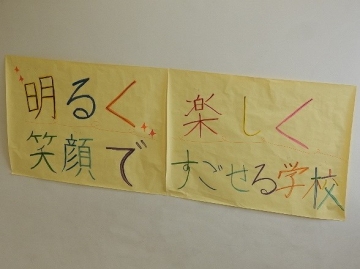 明るく
笑顔で
楽しく
すごせる学校